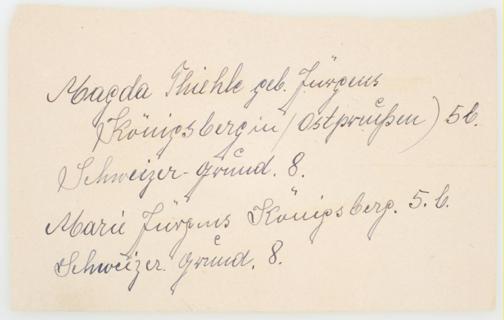 Magda Thiehle geb. Jürgens
Königsberg in (Ostpreußen) 5b.
Schweizer-Grund. 8.
Marie Jürgens Königsberg. 5. b.
Schweizer. Grund. 8.